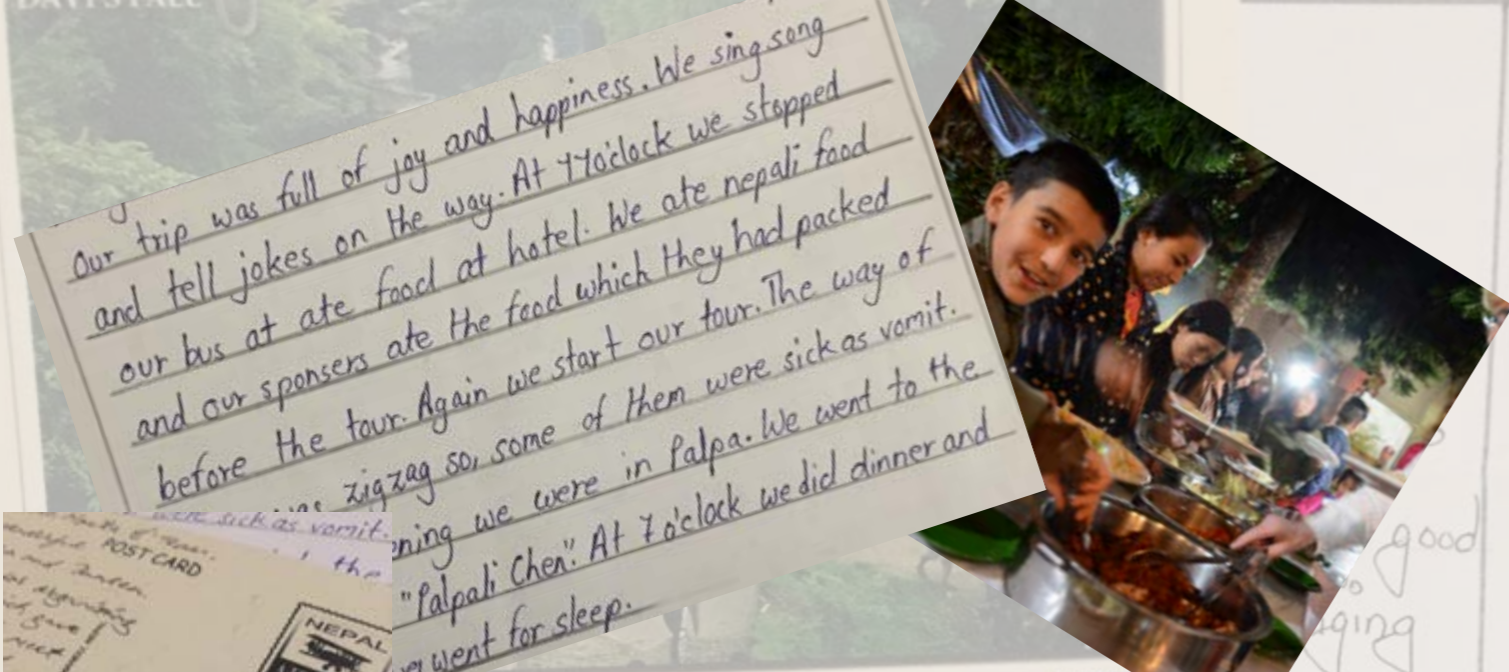 Our trip was full of joy and happiness. We sing song
and tell jokes on the way. At 11o'clock we stopped
our bus at ate food at hotel. We ate nepali food
and our sponsers ate the food which they had packed
before the tour. Again we start our tour. The way of
was zigzag so, some of them were sick as vomit.
ening we were in Palpa. We went to the
"Palpali Chen". At 7 o'clock we did dinner and
went for sleep.
sick as vomit.
the
POST CARD
NEPAL
good